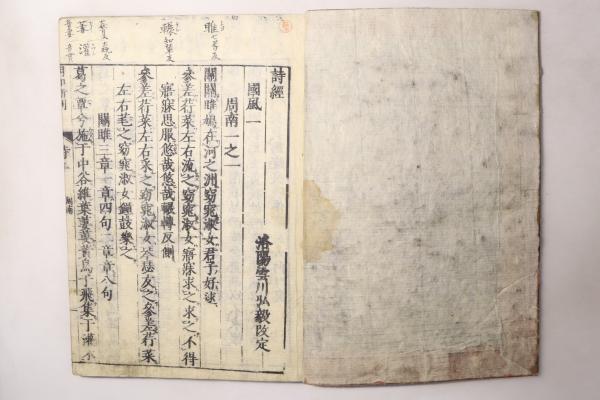 詩經
國風一
周南一之一
洛陽雲川弘毅改定
關關雎鳩在河之洲窈窕淑女君子好逑
參差荇菜左右流之窈窕淑女寤寐求之求之不得
寤寐思服悠哉悠哉輾轉反側
參差荇菜左右采之窈窕淑女琴瑟友之參差荇菜
左右芼之窈窕淑女鐘鼓樂之
關雎三章一章四句二章章八句
葛之覃兮施于中谷維葉萋萋黃鳥于飛集于灌木